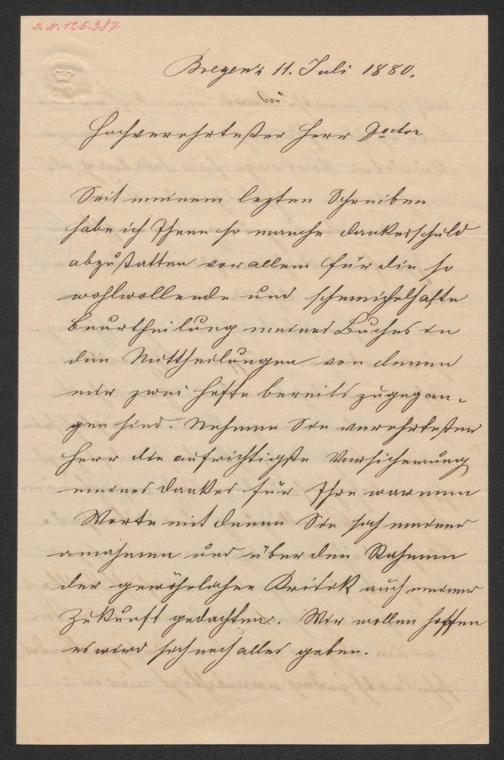 I. N. 125.387
Bregenz 11. Juli 1880.
Hochverehrtester Herr Doctor
Seit meinem lezten Schreiben
habe ich Ihnen so manche Dankesschuld
abzustatten vor allem für die so
wohlwollende und schmeichelhafte
Beurtheilung meines Buches in
den Mittheilungen von denen
mir zwei Hefte bereits zugegan-
gen sind. Nehmen Sie verehrtester
Herr die aufrichtigste Versicherung
meines Dankes für Ihre warmen
Worte mit denen Sie sich meiner
annahmen und über den Rahmen
der gewöhnlichen Kritik auch meiner
Zukunft gedachten. Wir wollen hoffen
es wird sich noch alles geben.